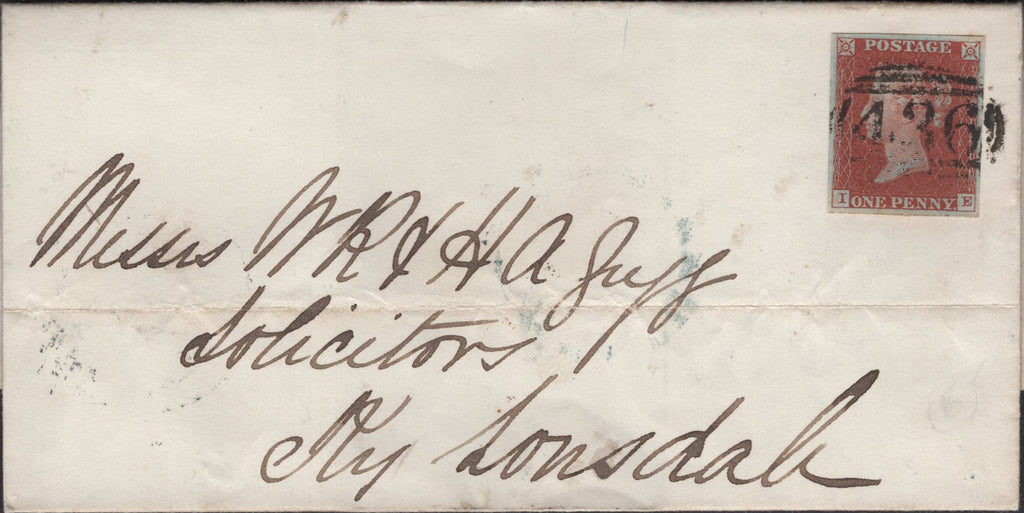 POSTAGE
436
I E
ONE PENNY
Messrs W R & H A Gregg
Solicitors
Ky Lonsdale